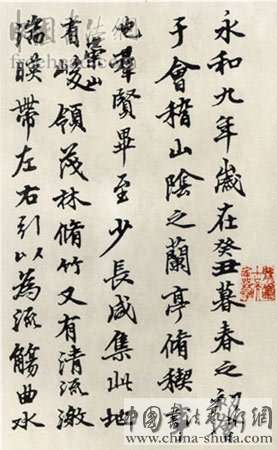 永和九年歲在癸丑暮春之初會
于會稽山陰之蘭亭脩稧事
也羣賢畢至少長咸集此地
有崇山峻領茂林脩竹又有清流激
湍暎帶左右引以為流觴曲水
www.china-shufa.com